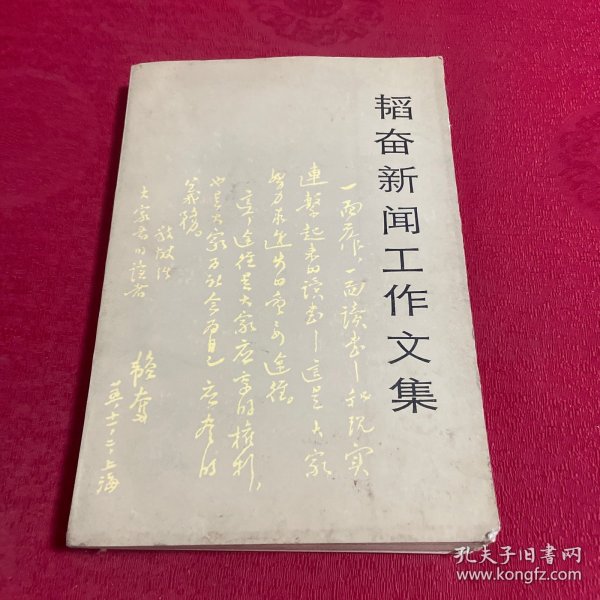 韬奋新闻工作文集
一面工作，一面读书——和现实
连系起来的读书——这是大家
努力求进步的重要途径。
这一途径是大家应享的权利，
也是大家为社会为自己应尽的
义务。
敬致
大众书的读者
韬奋
上海
孔夫子旧书网
www.kongfz.com